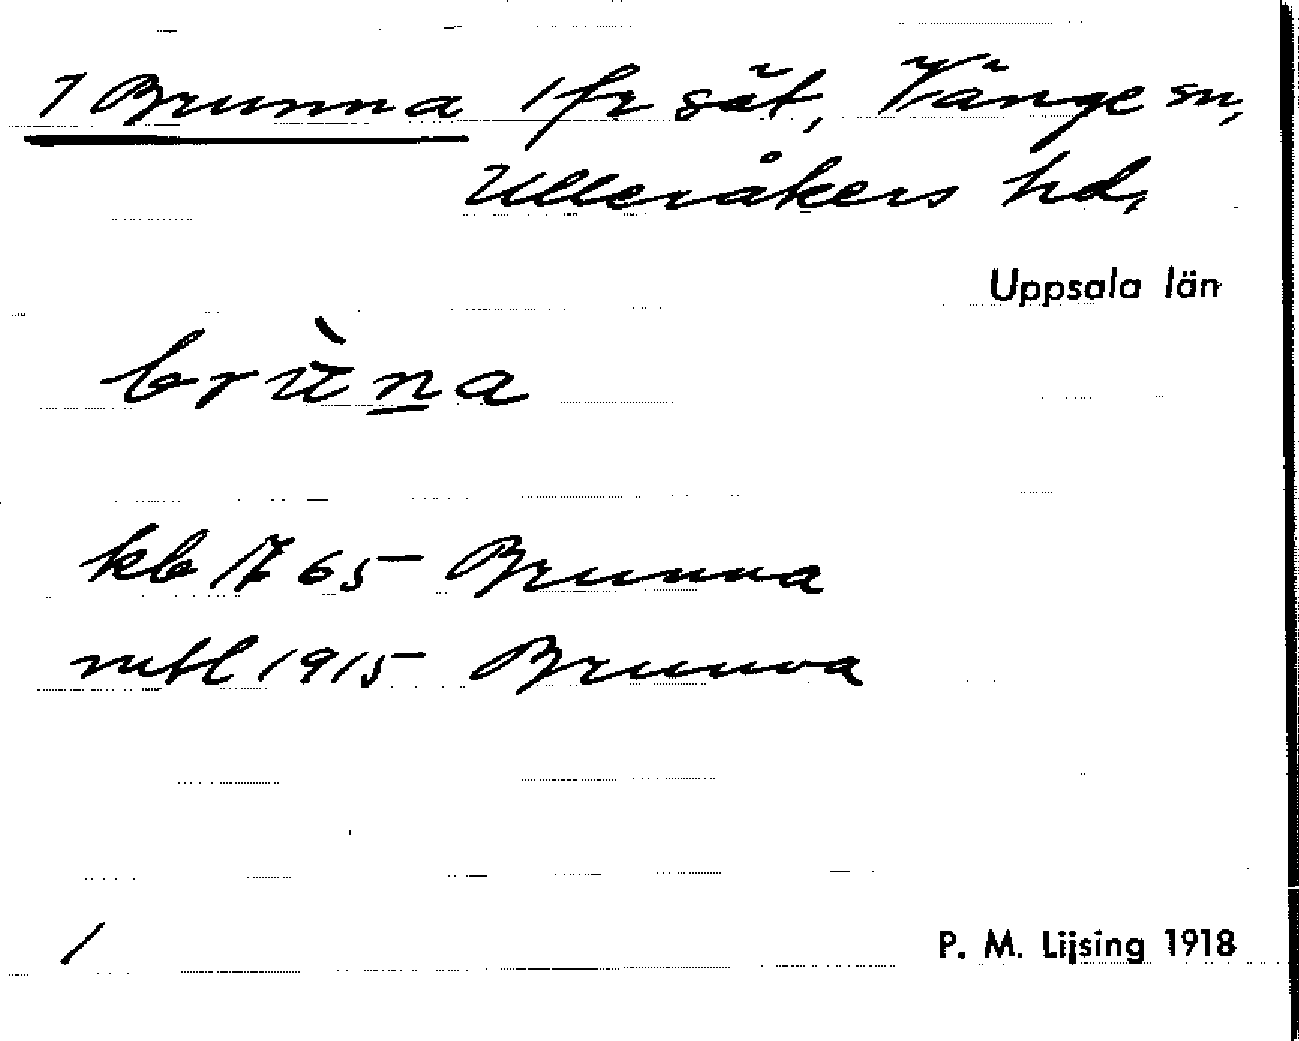 1 Brunna 1 fr sät, Vänge sn,
Ulleråkers hd,
Uppsala län
brùn̲a
kb 1765 Brunna
mtl 1915 Brunna
/
P. M. Lijsing 1918